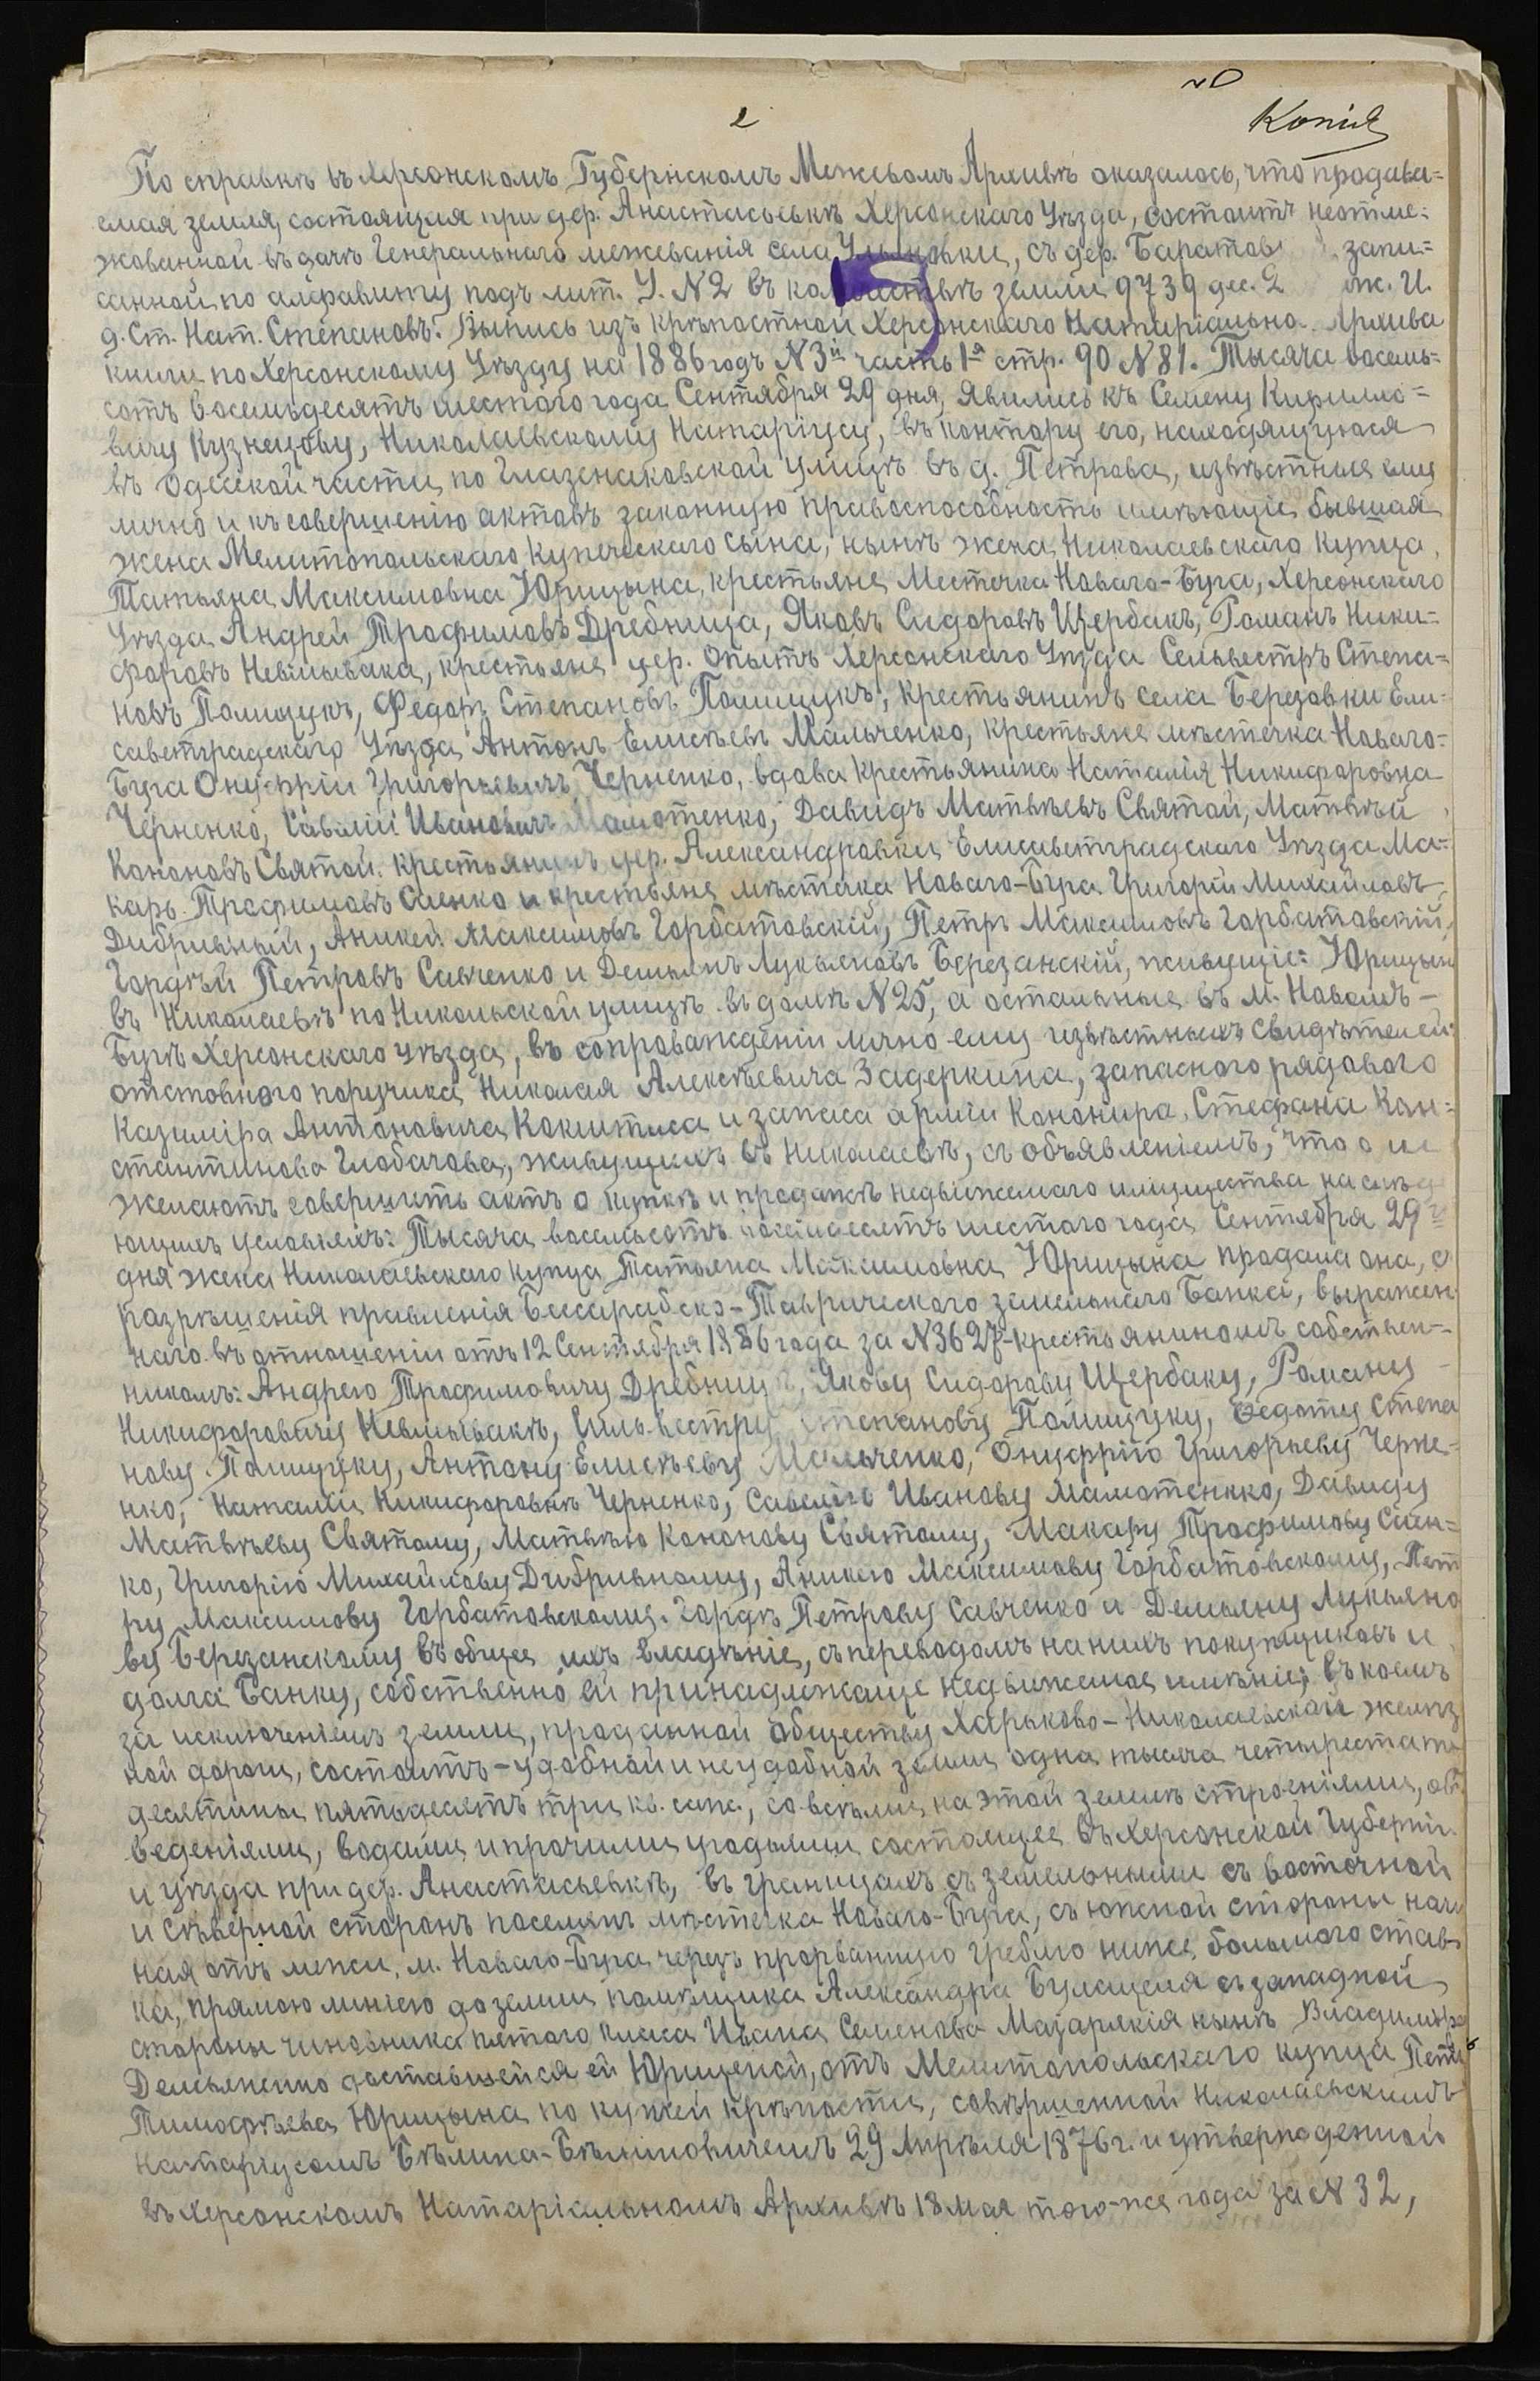 2
Копія
По справкѣ въ Херсонскомъ Губернскомъ Межевомъ Архивѣ оказалось, что продава=
емая земля, состоящая при дер. Анастасьевкѣ Херсонскаго Уѣзда, состоитъ неотме=
жованной въ дачѣ Генеральнаго межеванія села, съ дер. запи=
санной по алфавиту подъ лит. У. №2 въ количествѣ земли 9739 дес. 2 И.
д. Ст. Нот. Степановъ. Выпись изъ крѣпостной Херсонскаго Нотаріально Архива
книги по Херсонскому Уѣзду на 1886 годъ №3й часть 1я стр. 90 №81. Тысяча восемь=
сотъ восемьдесятъ шестого года Сентября 29 дня, явились къ Семену Кирилло=
вичу Кузнецову, Николаевскому Нотаріусу, въ контору его, находящуюся
въ Одесской части, по Глазенаповской улицѣ въ д. Петрова, извѣстные ему
лично и къ совершенію актовъ законную правоспособность имѣющіе, бывшая
жена Мелитопольскаго Купеческаго сына, нынѣ жена Николаевскаго Купца,
Татьяна Максимовна Юрицына, крестьяне Местечка Новаго-Буга, Херсонскаго
Уѣзда Андрей Трофимовъ Дребница, Яковъ Сидоровъ Щербакъ, Романъ Ники=
форовъ Невмывака, крестьяне дер. Опытъ Херсонскаго Уѣзда Сельвестръ Степа=
новъ Полищукъ, Федотъ Степановъ Полищукъ, крестьянинъ села Березовки Ели=
саветградскаго Уѣзда Антонъ Елисѣевъ Мальченко, крестьяне мѣстечка Новаго=
Буга Онуфрій Григорьевичъ Черненко, вдова крестьянина Наталія Никифоровна
Черненко, Савелій Ивановичъ Мамотенко, Давидъ Матвѣевъ Святой, Матвѣй
Кононовъ Святой, крестьянинъ дер. Александровки Елисаветградскаго Уѣзда Ма=
каръ Трофимовъ Саенко и крестьяне мѣстечка Новаго-Буга Григорій Михайловъ
Дибривный, Аникей Максимовъ Горбатовскій, Петръ Максимовъ Горбатовскій,
Гордѣй Петровъ Савченко и Демьянъ Лукьяновъ Березанскій, живущіе: Юрицына
въ Николаевѣ по Никольской улицѣ въ домѣ №25, а остальные въ м. Новомъ-
Бугѣ Херсонскаго уѣзда, въ сопровожденіи лично ему извѣстныхъ свидѣтелей:
отставного поручика Николая Алексѣевича Задеркина, запасного рядового
Казиміра Антоновича и запаса арміи Канонира Стефана Кон=
стантинова Глобачова, живущихъ въ Николаевѣ, съ объявленіемъ, что они
желаютъ совершить актъ о куплѣ и продажѣ недвижемаго имущества на слѣду
ющихъ условіяхъ: Тысяча восемьсотъ восемьдесятъ шестого года Сентября 29го
дня жена Николаевскаго купца Татьяна Максимовна Юрицына продала она, съ
разрѣшенія правленія Бессарабско-Таврическаго земельнаго Банка, выражен
наго въ отношеніи отъ 12 Сентября 1886 года за №3627-крестьянинамъ собствен=
никамъ: Андрею Трофимовичу Дребницѣ, Якову Сидорову Щербаку, Роману
Никифоровичу Невмывакѣ, Сильвестру Степанову Полищуку, Федоту Степа
нову Полищуку, Антону Елисѣеву Мальченко, Онуфрію Григорьеву Черне=
нко, Наталіи Никифоровнѣ Черненко, Савелію Иванову Мамотенко, Давиду
Матвѣеву Святому, Матвѣю Кононову Святому, Макару Трофимову Саен=
ко, Григорію Михайлову Дибривному, Аникею Максимову Горбатовскому, Пет
ру Максимову Горбатовскому, Гордѣ Петрову Савченко и Демьяну Лукьяно
ву Березанскому въ общее ихъ владѣніе, съ переводомъ на нихъ покупщиковъ и
долга Банку, собственно ей принадлежаще недвижемое имѣніе, въ коемъ
за исключеніемъ земли, проданной обществу Харьково-Николаевской желѣз
ной дороги, состоитъ-удобной и неудобной земли одна тысяча четыреста
десятины пятьдесятъ три кв. саж., со всѣми на этой землѣ строеніями,
веденіями, водами и прочими угодьями состоящее въ Херсонской Губерніи
и уѣзда при дер. Анастасьевкѣ, въ границахъ съ земельными съ восточной
и сѣверной сторонъ поселянъ мѣстечка Новаго-Буга, съ южной стороны начи
ная отъ межи м. Новаго-Буга черезъ прорванную греблю ниже большого став
ка, прямою линіею до земли помѣщика Александра Булацеля съ западной
стороны чиновника пятого класса Ивана Семенова Мазаракія нынѣ Владиміра
Демьяненко доставшейся ей Юрициной, отъ Мелитопольскаго купца Петра
Тимофѣева Юрицына по купчей крѣпости, совѣршенной Николаевскимъ
нотаріусомъ Бѣлина-Бѣлиновичемъ 29 Апрѣля 1876 г. и утвержденной
въ Херсонскомъ Нотаріальномъ Архивѣ 18 мая того-же года за №32,